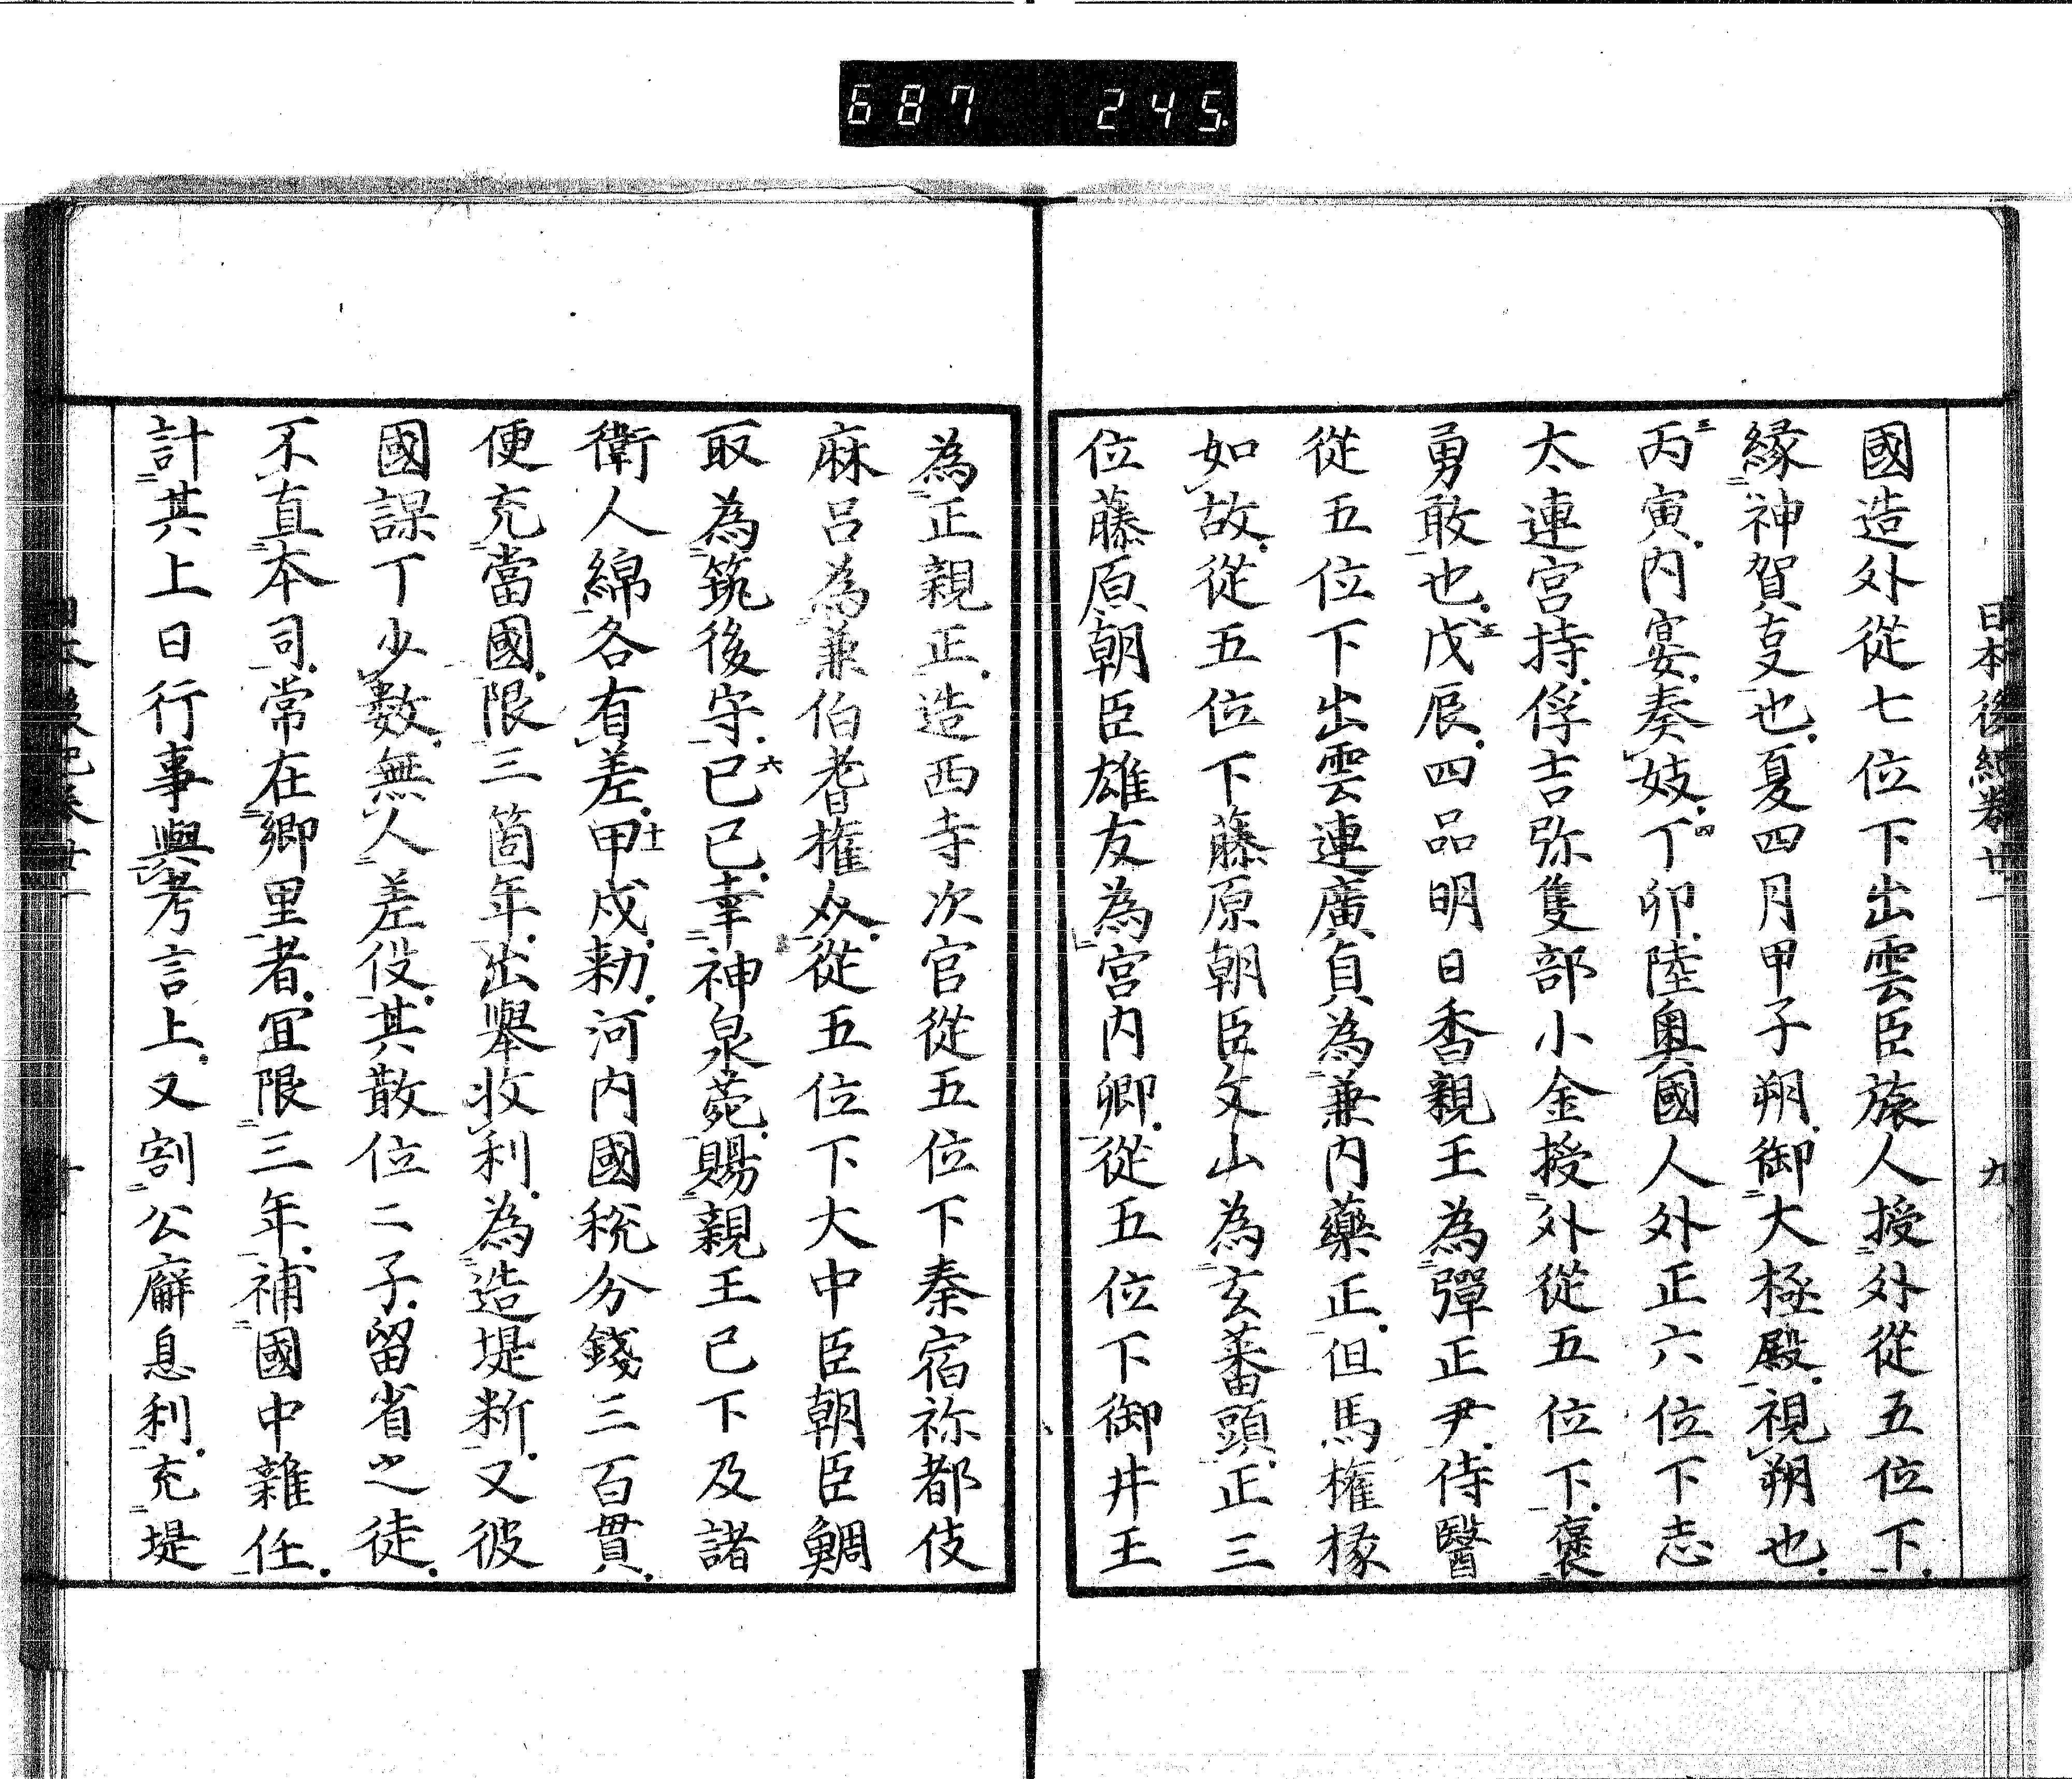 687 245
日本後紀卷廿一 九
國造外從七位下出雲臣旅人授外從五位下
緣神賀事也夏四月甲子朔御大極殿視朔也
丙寅內宴奏妓丁卯陸奧國人外正六位下志
太連宮持俘吉弥隻部小金授外從五位下褒
勇敢也戊辰四品明日香親王為彈正尹侍醫
從五位下出雲連廣貞為兼內藥正但馬權掾
如故從五位下藤原朝臣文山為玄蕃頭正三
位藤原朝臣雄友為宮內卿從五位下御井王
為正親正造西寺次官從五位下秦宿祢都伎
麻呂為兼伯耆權从從五位下大中臣朝臣鯛
取為筑後守己巳幸神泉菀賜親王已下及諸
衛人綿各有差甲戌勑河內國稅分錢三百貫
便充當國限三箇年出舉收利為造堤断又彼
國課丁少數無人差役其散位二子留省之徒
不直本司常在鄉里者宜限三年補國中雜任
計其上日行事與考言上又割公廨息利充堤